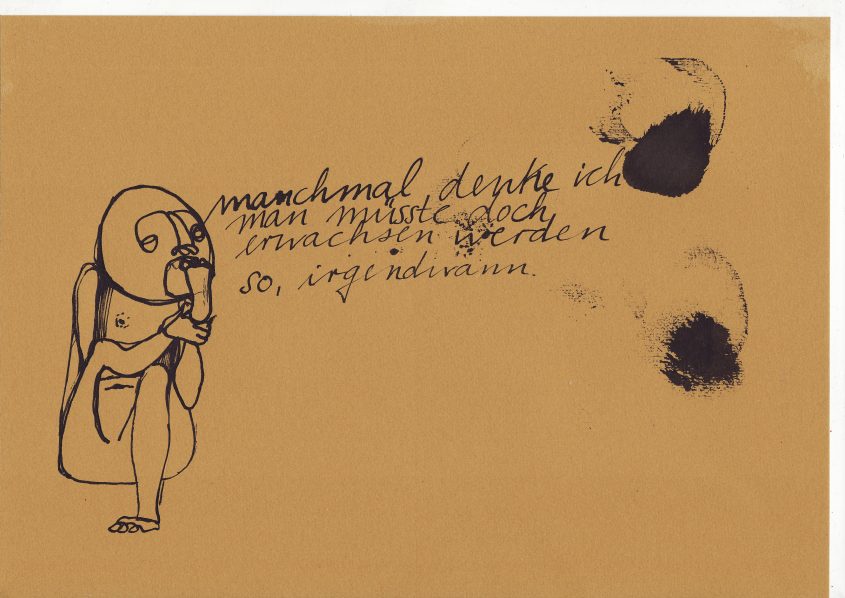 manchmal denke ich
man müsste doch
erwachsen werden
so, irgendwann.